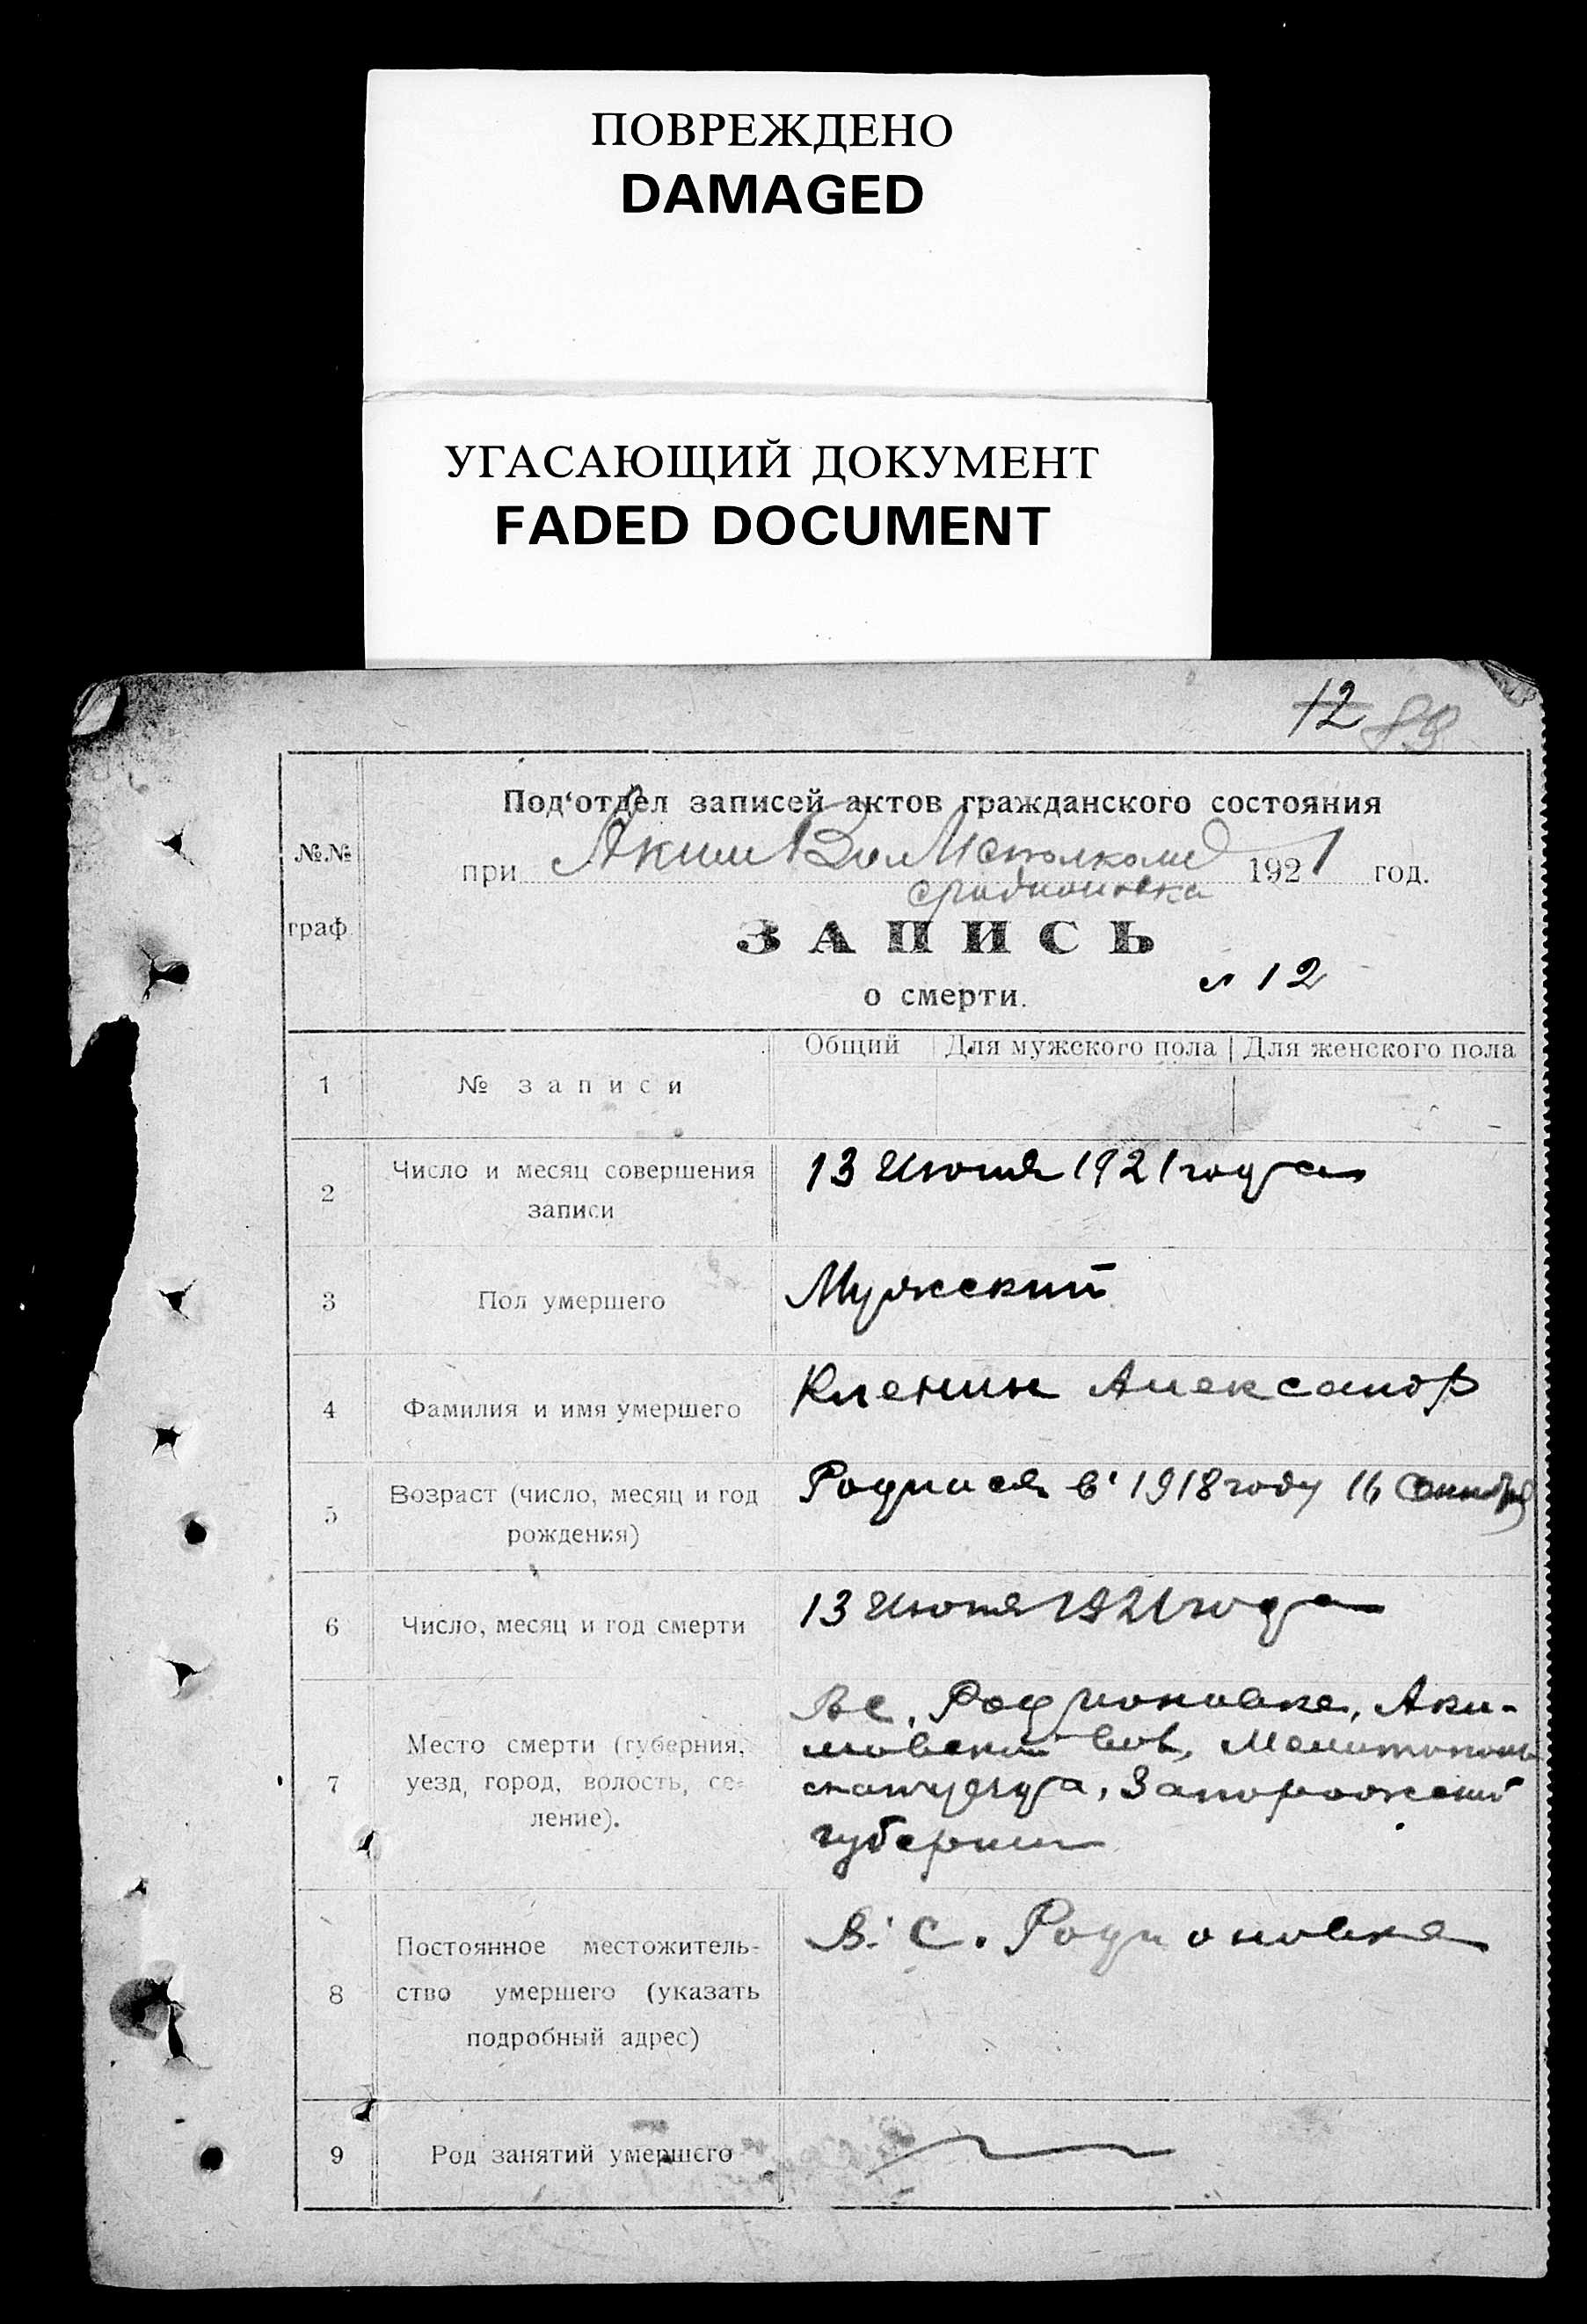 ПОВРЕЖДЕНО
DAMAGED
УГАСАЮЩИЙ ДОКУМЕНТ
FADED DOCUMENT
12 83
№№ граф
Под‘отдел записей актов гражданского состояния
при Аким ВолИсполкоме 1921 год.
с родионовка
ЗАПИСЬ
о смерти. № 12
Общий Для мужского пола Для женского пола
1 № записи
2 Число и месяц совершения
записи
13 Июня 1921 года
3 Пол умершего Мужский
4 Фамилия и имя умершего Кленин Александр
5 Возраст (число, месяц и год
рождения)
Родился в 1918 году 16
6 Число, месяц и год смерти 13 Июня 1921 года
7 Место смерти (губерния,
уезд, город, волость, се-
ление).
В с. Родионовке, Аки-
мовской вол, Мелитополь
скаго уезда, Запорожской
губернии
8 Постоянное местожитель-
ство умершего (указать
подробный адрес)
В. С. Родионовке
9 Род занятий умершего